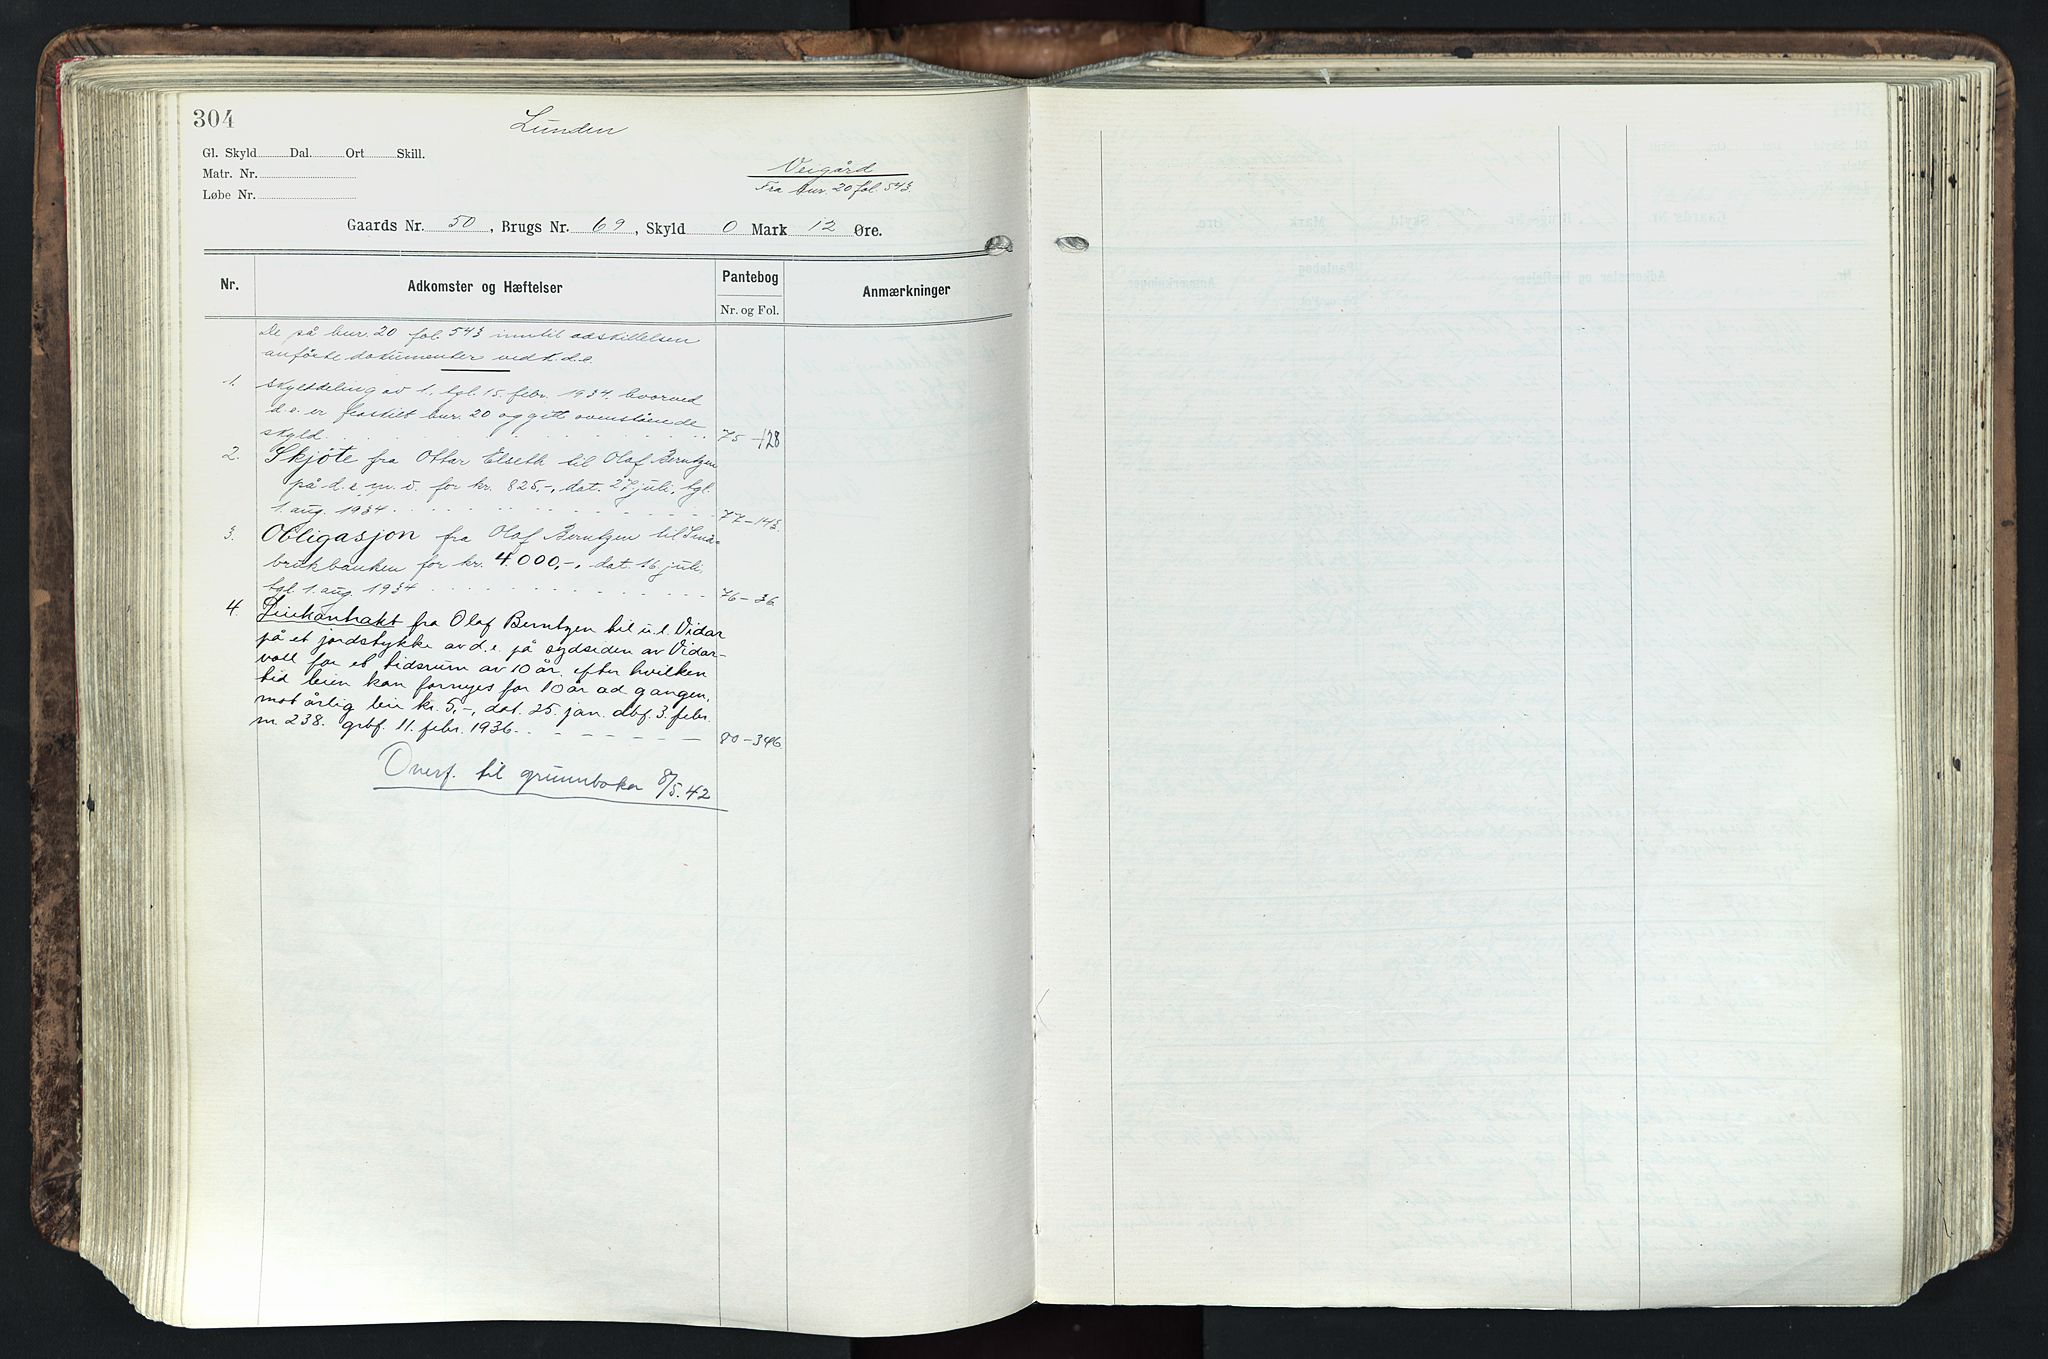 304
Lunden
Gl. Skyld Dal. Ort Skill.
Matr. Nr.
Løbe Nr.
Veigård
Fra bnr. 20 fol. 543.
Gaards Nr. 50, Brugs Nr. 69, Skyld 0 Mark 12 Øre.
Nr. Adkomster og Hæftelser Pantebog Anmærkninger
Nr. og Fol.
De på bnr. 20 fol. 543 inntil adskillelsen
anførte dokumenter vedk. d.e.
1. Skylddeling av 1, tgl. 15. febr. 1934, hvorved
d.e. er fraskilt bnr. 20 og gitt ovenstående
skyld. 75-128
2. Skjøte fra Ottar Elseth til Olaf Berntzen
på d.e. m.v. for kr. 825,-, dat. 27. juli, tgl.
1. aug. 1934 77-143.
3. Obligasjon fra Olaf Berntzen til Små-
brukbanken for kr. 4.000,-, dat. 16. juli,
tgl. 1. aug. 1934 76-36
4. Leiekontrakt fra Olaf Berntzen til i.l. Vidar
på et jordstykke av d.e. på sydsiden av Vidar-
voll for et tidsrum av 10 år, efter hvilken
tid leien kan fornyes for 10 år ad gangen,
mot årlig leie kr. 5,-, dat. 25. jan. dbf. 3. febr.
m 238. grbf. 11. febr. 1936. 80-346
Overf. til grunnboken 8/5.42